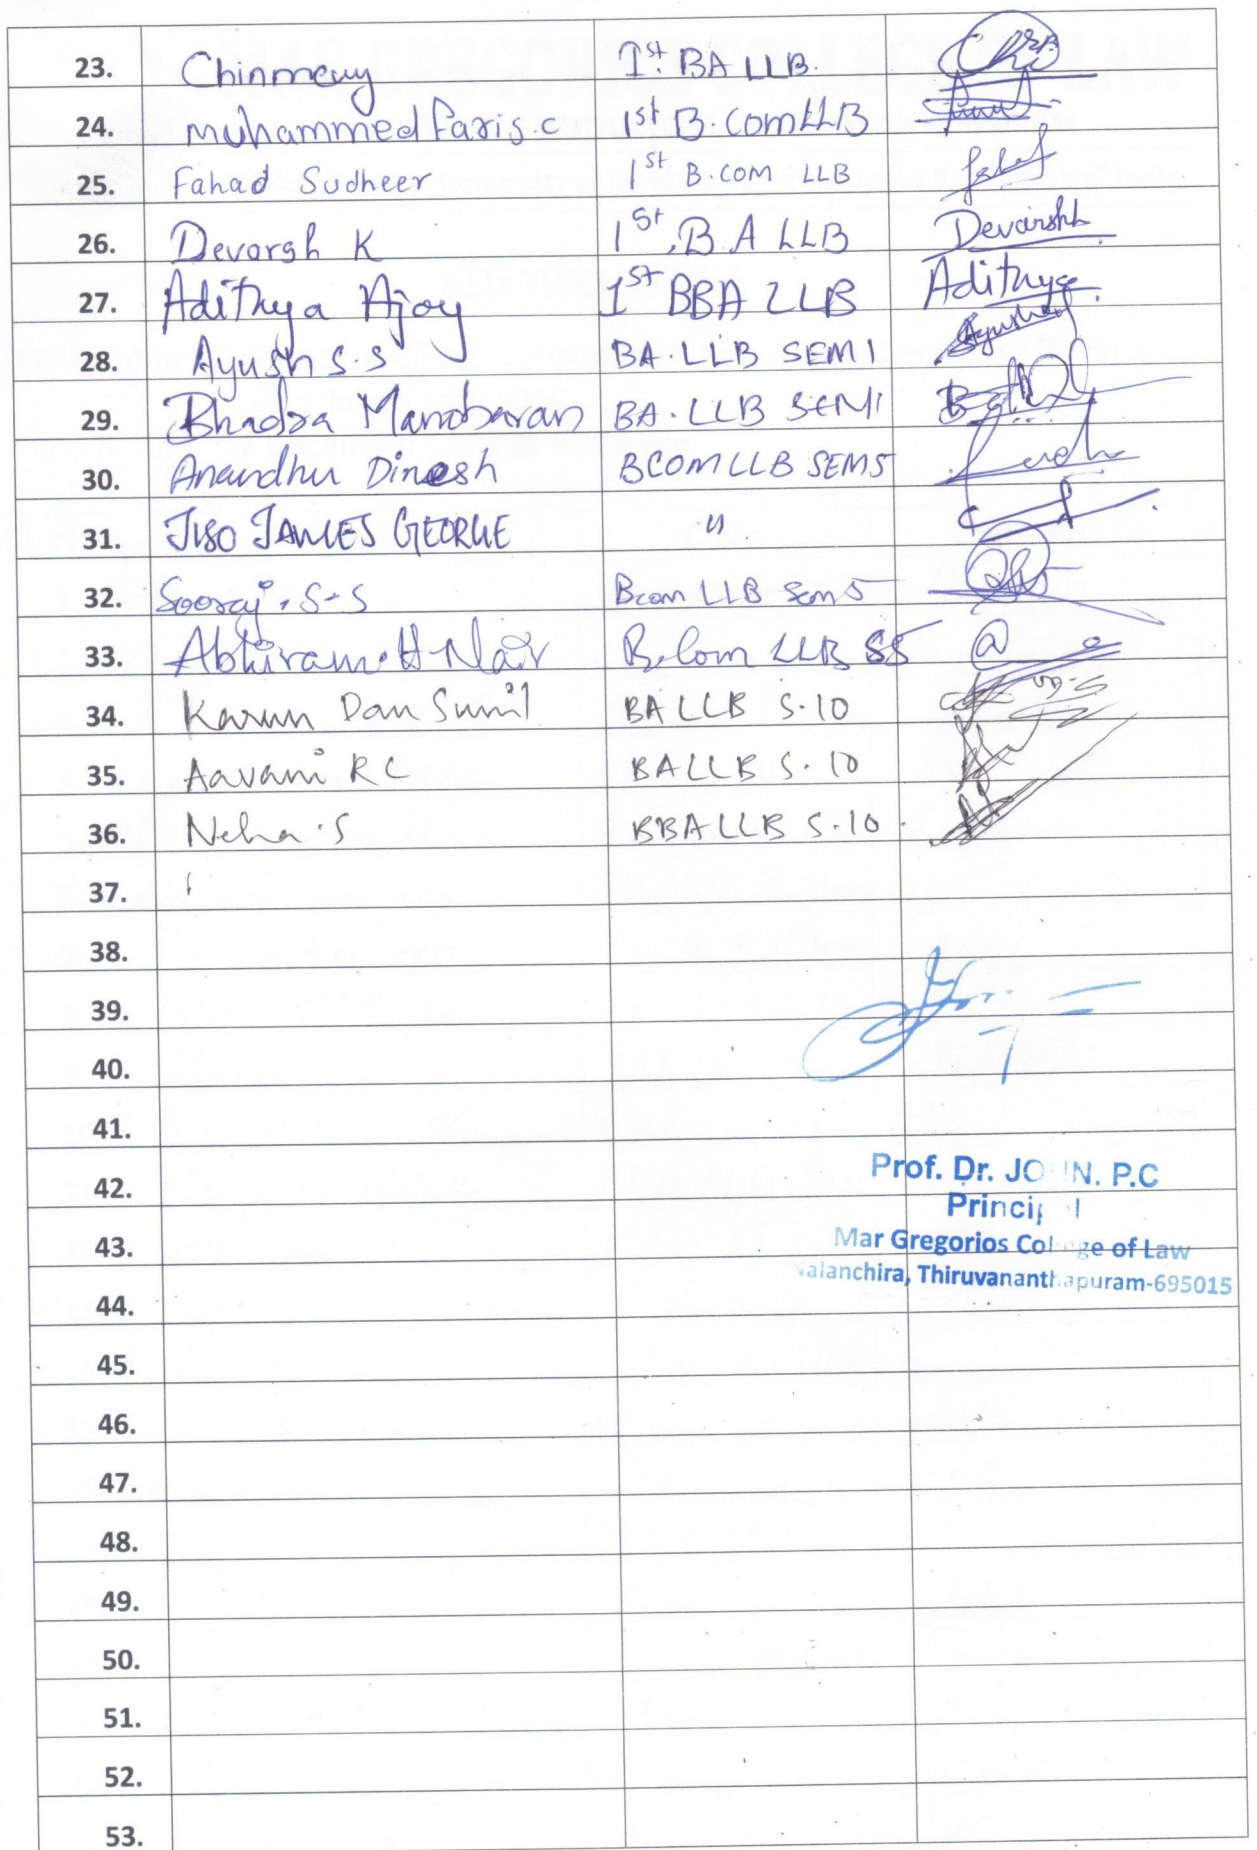 23. Chinmeuy 1st. BA LLB.
24. muhammed faris.c 1st B.comLLB
25. Fahad Sudheer 1st B.COM LLB
26. Devarsh K 1st, B A LLB Devarshk
27. Adithya Ajoy 1st BBA LLB Adithya
28. Ayush S.S BA.LLB SEM 1
29. Bhadra Manoharan BA.LLB SEM1
30. Anandhu Dinesh BCOMLLB SEM5
31. JISO JAMES GEORGE "
32. Sooraj.S-S Bcom LLB Sem5
33. Abhiram.H Nair B.Com LLB S5
34. Karun Dan Sunil BA LLB S.10
35. Aavani R C BALLB S.10
36. Neha.S BBA LLB S.10
37.
38.
39.
40.
41.
42. Prof. Dr. JOHN. P.C
Principal
43. Mar Gregorios College of Law
Nalanchira, Thiruvananthapuram-695015
44.
45.
46.
47.
48.
49.
50.
51.
52.
53.